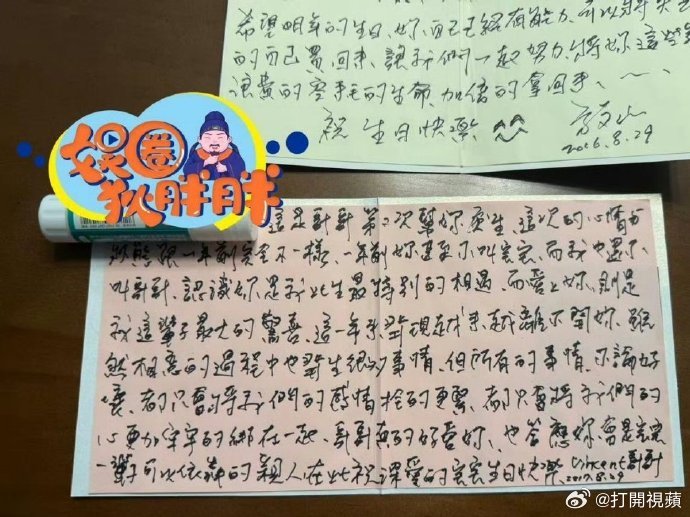 希望明年的生日、妳自己已經有能力、可以將失去
的自己買回來、讓我們一起努力、將妳這些年
浪費的空白的生命、加倍的拿回來、
祝 生日快樂
2016.8.29
娛圈
狄胖胖
這是哥哥第2次幫妳慶生、這次的心情與
狀態跟一年前完全不一樣、一年前妳甚至不叫寶寶、而我也還不
叫哥哥、認識妳是我此生最特別的相遇、而愛上妳、則是
我這輩子最大的驚喜、這一年來發現越來越離不開妳、雖
然相愛的過程中也發生很多事情、但所有的事情、不論好
壞、都只會將我們的感情拴的更緊、都只會將我們的
心更加牢牢的綁在一起、哥哥真的好愛妳、也答應妳會是寶寶
一輩子可以依靠的親人在此祝深愛的寶寶生日快樂 Vincent哥哥
2017.8.29
@打開視蘋